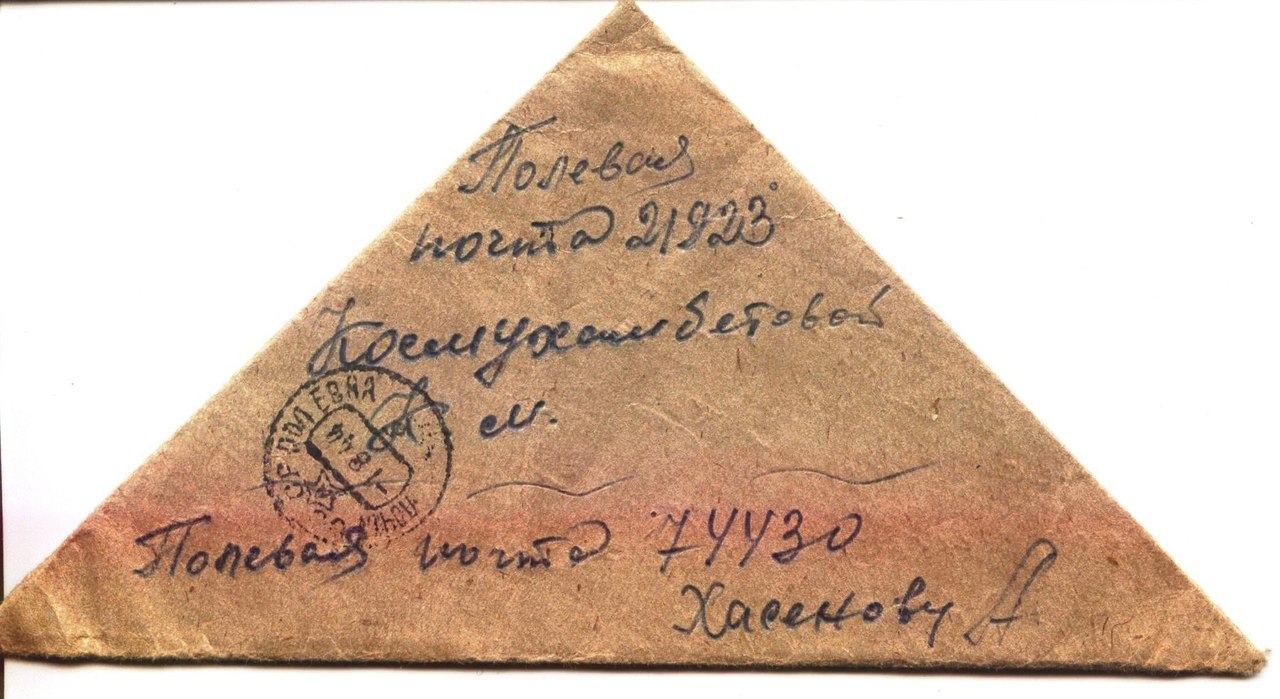 Полевая
почта 21923
Космухамбетовой
А м.
СССР ПОЛЕВАЯ ПОЧТА
8 44
Полевая почта 74430
Хасенову А